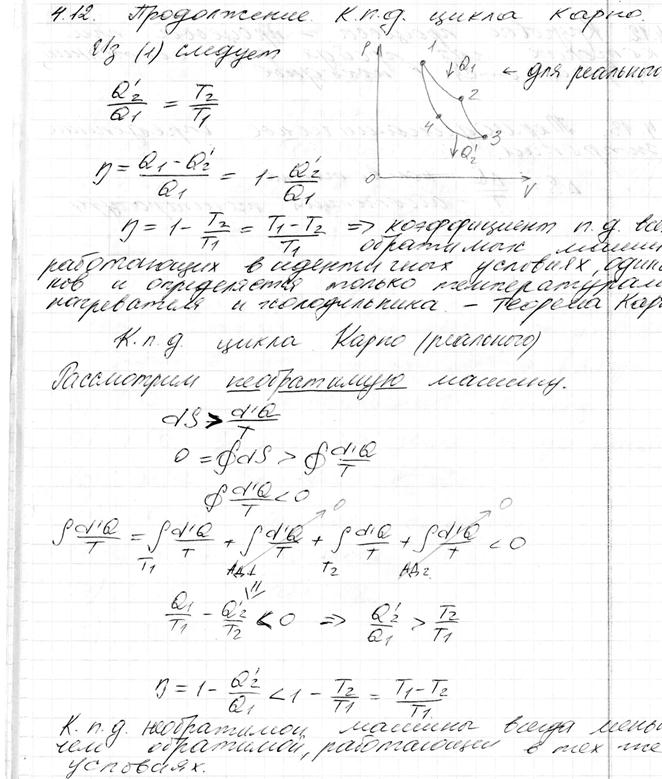 4.12. Продолжение. К.п.д. цикла Карно.
Из (1) следует
P 1 ↓Q₁ ← для реального
2
4
3
↓Q₂'
0 V
Q₂'/Q₁ = T₂/T₁
η = (Q₁ - Q₂')/Q₁ = 1 - Q₂'/Q₁
η = 1 - T₂/T₁ = (T₁ - T₂)/T₁ => коэффициент п.д. все
обратимых машин
работающих в идентичных условиях, один
ков и определяется только температурам
нагревателя и холодильника. – Теорема Кар
К.п.д цикла Карно (реального)
Рассмотрим необратимую машину.
dS > d'Q/T
0 = ∮dS > ∮ d'Q/T
∮ d'Q/T < 0
∫ d'Q/T = ∫ d'Q/T + ∫ d'Q/T + ∫ d'Q/T + ∫ d'Q/T < 0
T₁ АД1 0 T₂ АД2 0
Q₁/T₁ - Q₂'/T₂ < 0 => Q₂'/Q₁ > T₂/T₁
η = 1 - Q₂'/Q₁ < 1 - T₂/T₁ = (T₁ - T₂)/T₁
К.п.д. необратимой машины всегда мень
чем обратимой, работающей в тех же
условиях.